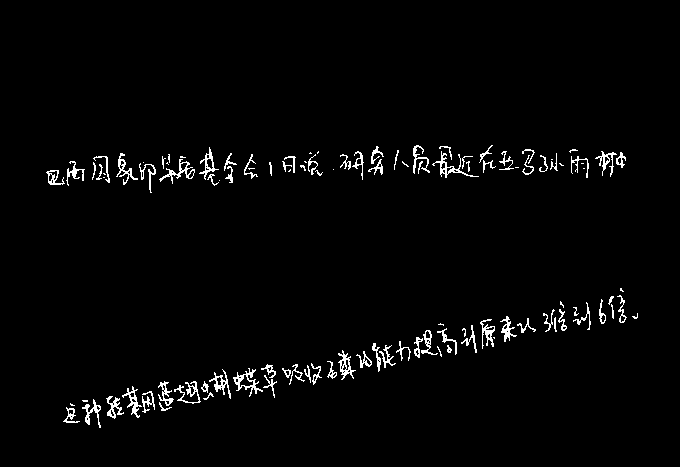 巴西国家印第安基金会1日说,研究人员最近在亚马孙雨林中
这种转基因蓝翅蝴蝶草吸收磷的能力提高到原来的3倍到6倍。